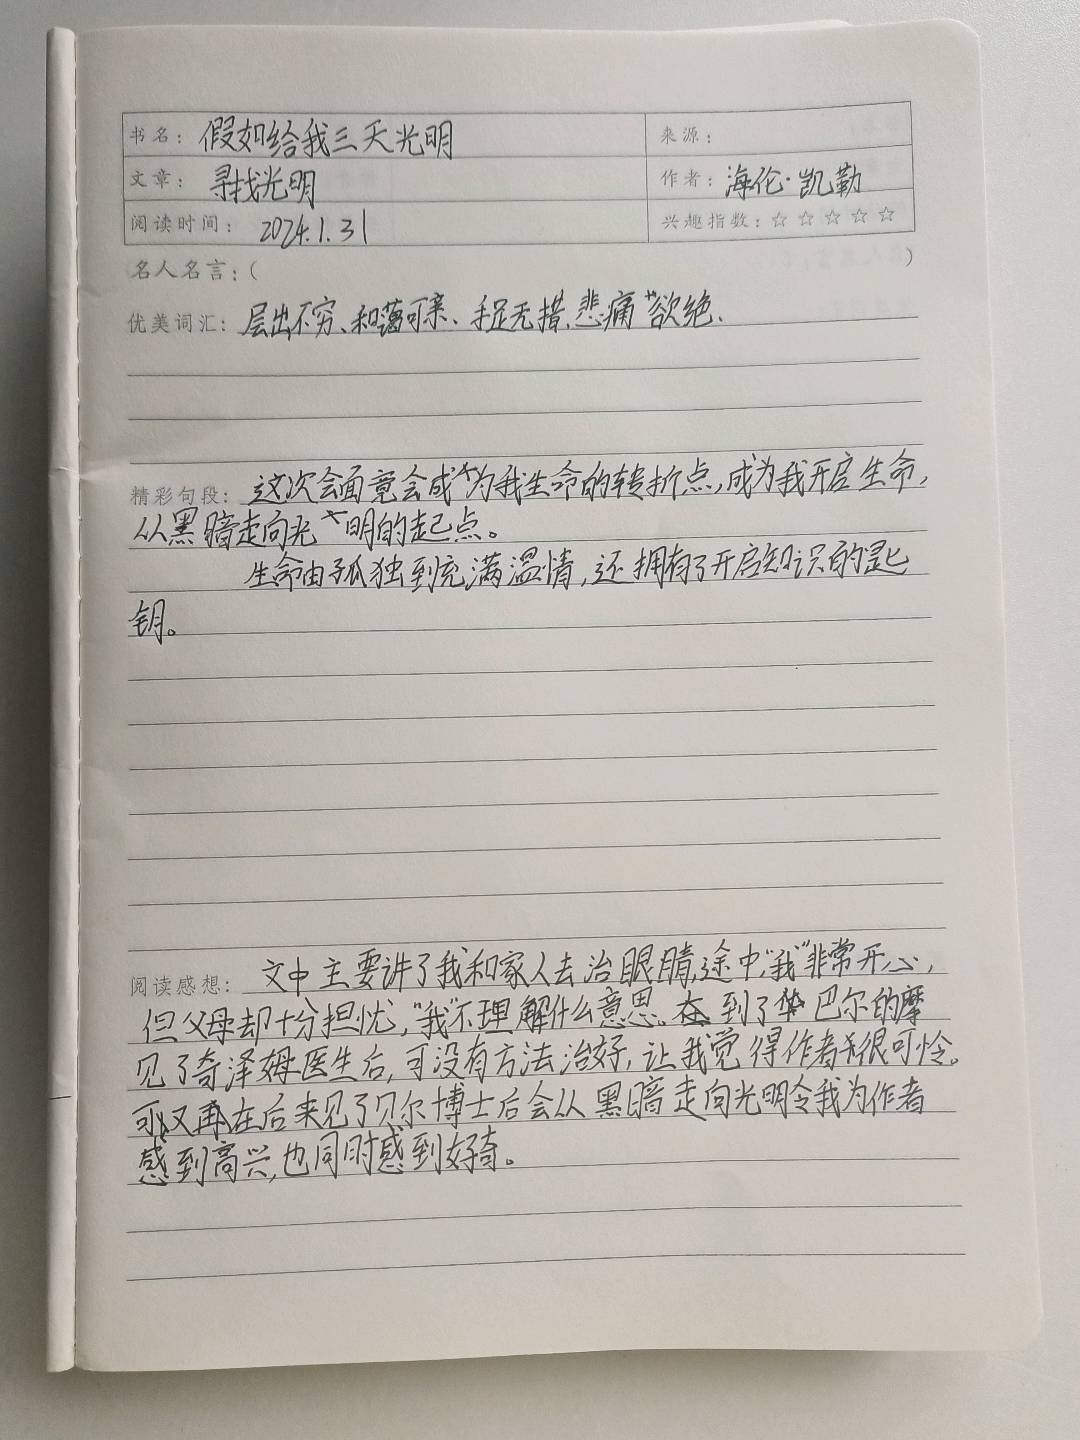 书名：假如给我三天光明 来源：
文章：寻找光明 作者：海伦·凯勒
阅读时间：2024.1.31 兴趣指数：☆☆☆☆☆
名人名言：（ ）
优美词汇：层出不穷、和蔼可亲、手足无措、悲痛欲绝、
精彩句段：这次会面竟会成为我生命的转折点，成为我开启生命，
从黑暗走向光明的起点。
生命由孤独到充满温情，还拥有了开启知识的匙
钥。
阅读感想：文中主要讲了我和家人去治眼睛，途中，“我”非常开心，
但父母却十分担忧，“我”不理解什么意思。在到了巴尔的摩
见了奇泽姆医生后，可没有方法治好，让我觉得作者很可怜。
可又再在后来见了贝尔博士后会从黑暗走向光明令我为作者
感到高兴，也同时感到好奇。